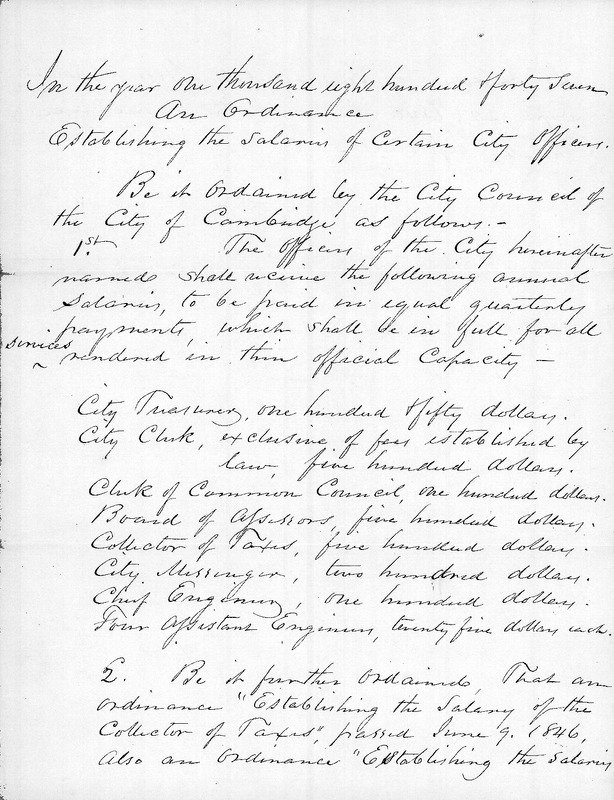 In the year one thousand eight hundred & forty Seven
An Ordinance
Establishing the Salaries of Certain City Officers.
Be it Ordained by the City Council of
the City of Cambridge as follows. -
1st. The Officers of the City hereinafter
named shall receive the following annual
Salaries, to be paid in equal quarterly
payments, which shall be in full for all
services rendered in their official Capacity -
City Treasurer, one hundred & fifty dollars.
City Clerk, exclusive of fees established by
law, five hundred dollars.
Clerk of Common Council, one hundred dollars.
Board of Assessors, five hundred dollars.
Collector of Taxes, five hundred dollars.
City Messenger, two hundred dollars.
Chief Engineer, one hundred dollars.
Four Assistant Engineers, twenty five dollars each.
2. Be it further Ordained, That an
Ordinance "Establishing the Salary of the
Collector of Taxes", passed June 9. 1846,
Also an Ordinance "Establishing the Salaries